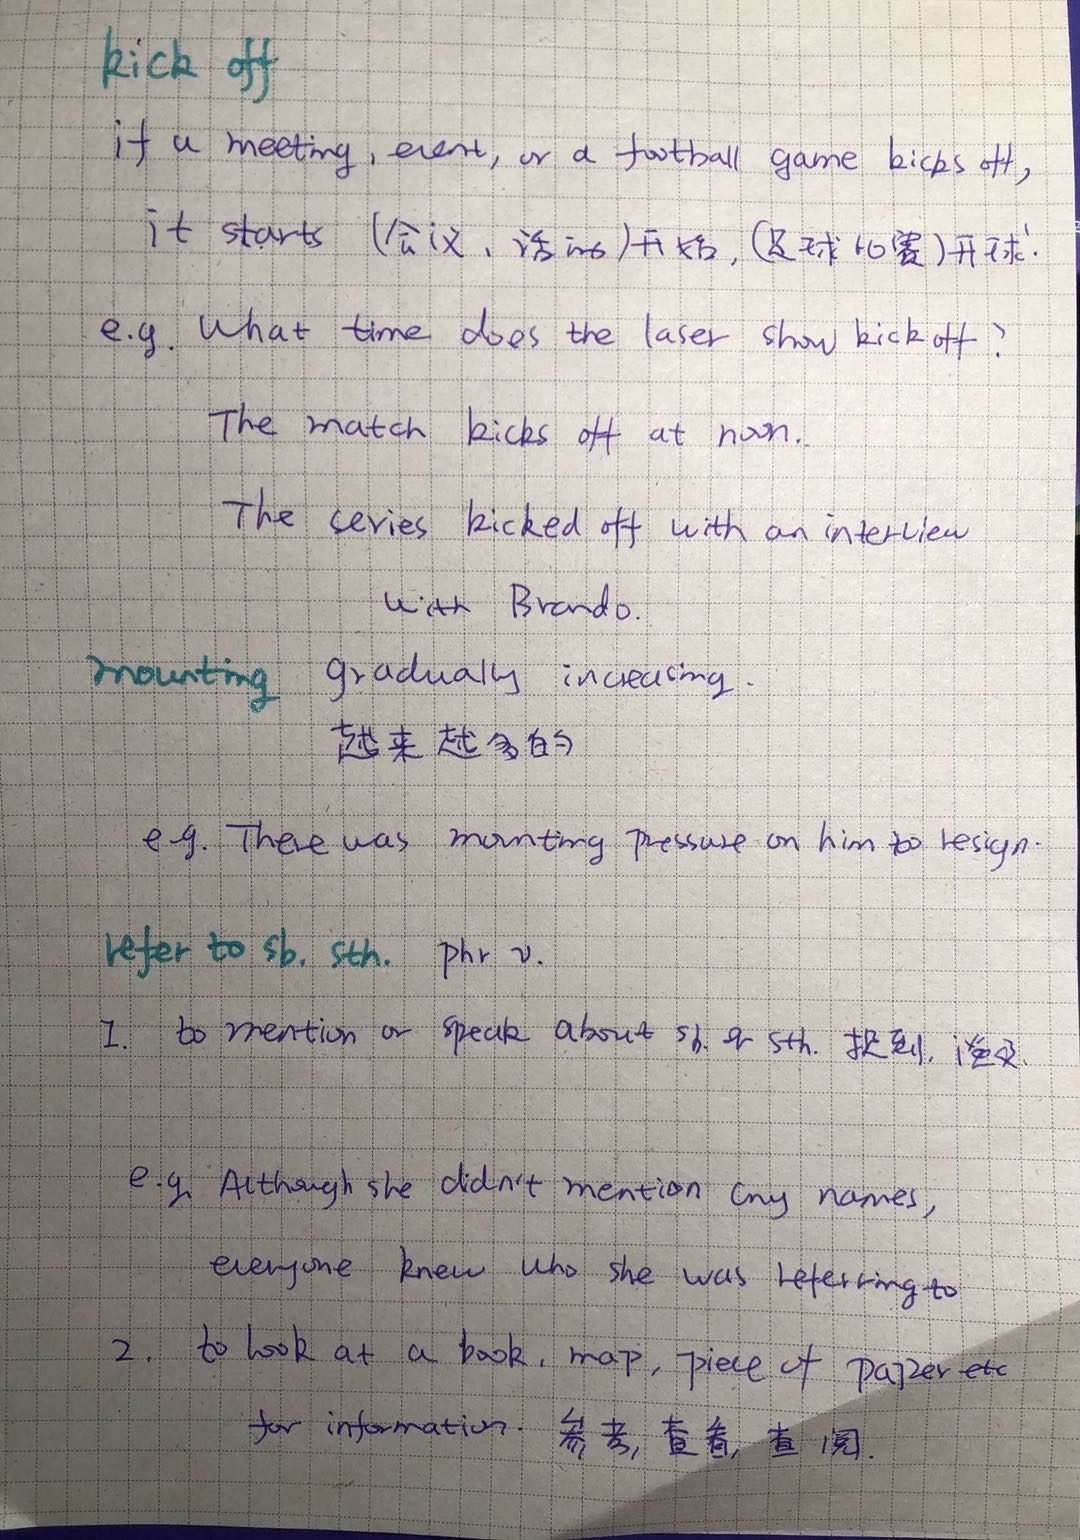 kick off
if a meeting, event, or a football game kicks off,
it starts (会议、活动)开始,(足球比赛)开球.
e.g. What time does the laser show kick off?
The match kicks off at noon.
The series kicked off with an interview
with Brando.
mounting gradually increasing.
越来越多的
e.g. There was mounting pressure on him to resign.
refer to sb. sth. phr v.
1. to mention or speak about sb. or sth. 提到, 谈及.
e.g. Although she didn't mention any names,
everyone knew who she was referring to
2. to look at a book, map, piece of paper etc
for information. 参考, 查看, 查阅.